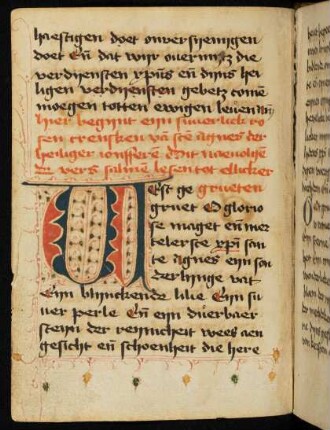 haestigen doet onversienigen
doet Eñ dat wijr overmitz die
verdijensten xp̃us eñ dijns hei
ligen verdijensten gebetz comẽ
moegen totten ewigen leven Amẽ
hier begint eijn suverlick ro
sen crensken vã sẽte agnes der
heiliger ionfferẽ Dit navolgẽ
de vers salmẽ lesen tot elicker
Weest ge grueten
gruet O glorio
se maget en mer
telersse xp̃i san
te agnes eijn son
derlinge vat
Eijn blinckende lilie Eijn su
ver perle Eñ eijn duerbaer
steijn der reijnicheit wees aen
gesicht eñ schoenheit die here